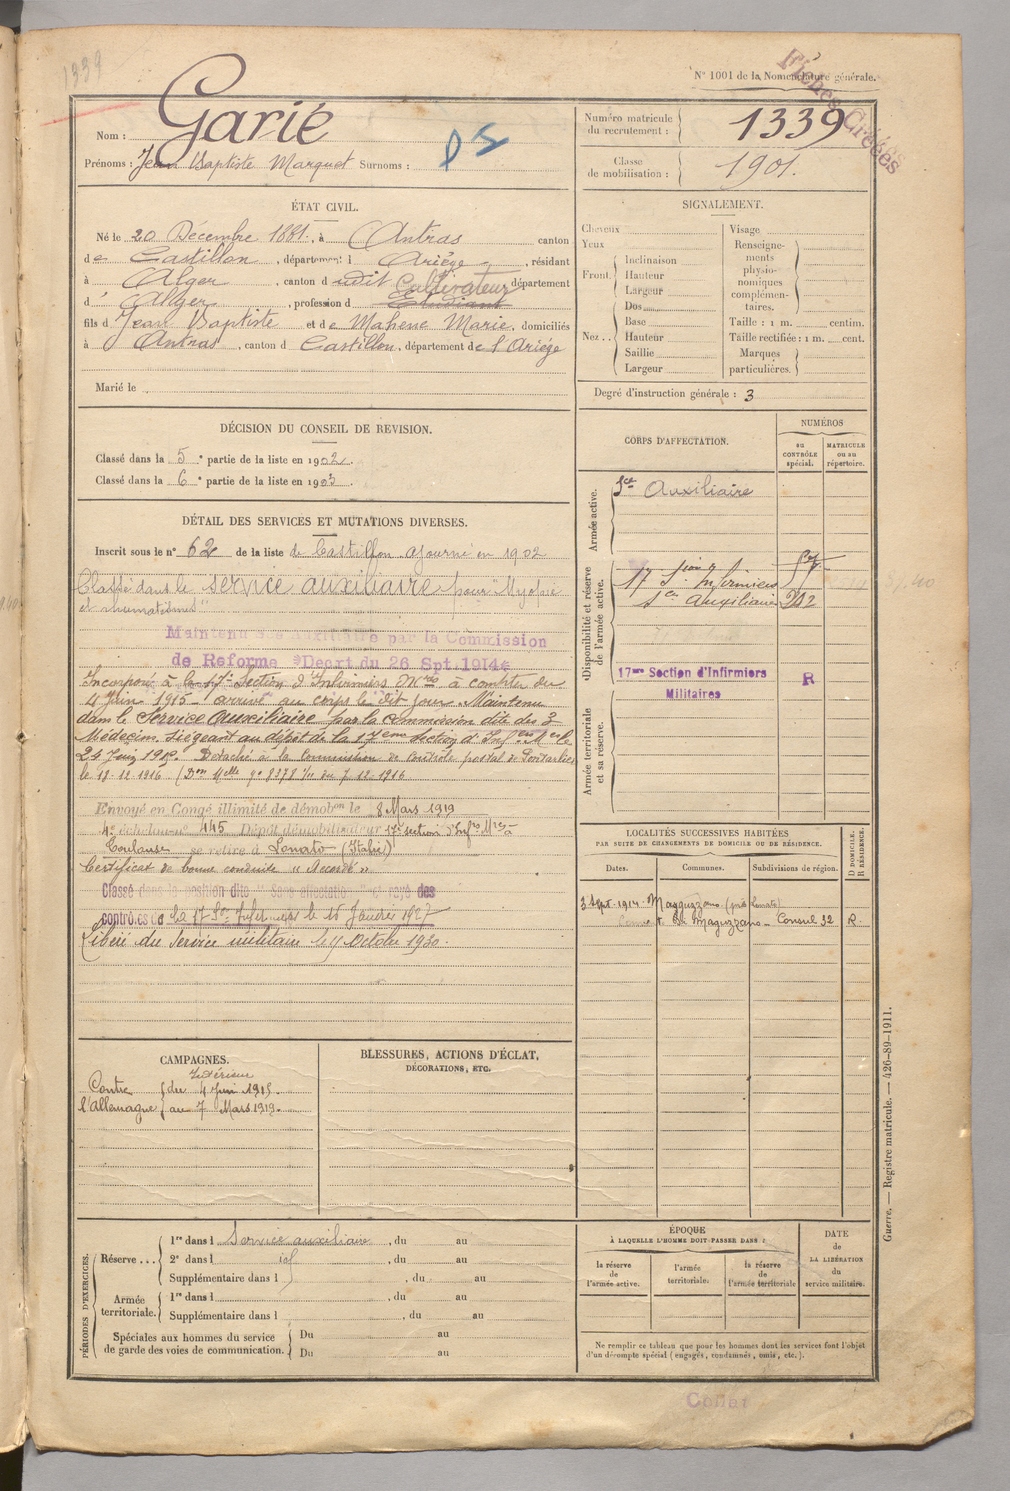 1339
N° 1001 de la Nomenclature générale.
Fiches Créées
Nom : Garié
Prénoms : Jean Baptiste Marquet Surnoms :
PS
Numéro matricule du recrutement : 1339
Classe de mobilisation : 1901.
ÉTAT CIVIL.
Né le 20 Décembre 1881, à Antras canton
de Castillon, département d Ariège, résidant
à Alger, canton d udit département
d' Alger, profession d Etudiant Cultivateur
fils d Jean Baptiste et de Mahene Marie, domiciliés
à Antras, canton d Castillon, département de l'Ariége
Marié le
SIGNALEMENT.
Cheveux
Yeux
Front.
Inclinaison
Hauteur
Largeur
Nez..
Dos
Base
Hauteur
Saillie
Largeur
Visage
Renseignements physionomiques complémentaires.
Taille : 1 m. centim.
Taille rectifiée : 1 m. cent.
Marques particulières.
Degré d'instruction générale : 3
DÉCISION DU CONSEIL DE REVISION.
Classé dans la 5e partie de la liste en 1902.
Classé dans la 6e partie de la liste en 1903.
DÉTAIL DES SERVICES ET MUTATIONS DIVERSES.
Inscrit sous le n° 62 de la liste de Castillon ajourné en 1902
Classé dans le service auxiliaire pour "Myopie
et rhumatismes"
Maintenu Sce Auxiliaire par la Commission
de Reforme "Decrt du 26 Spt. 1914"
Incorporé à la 17e Section d'Infirmiers Mres à compter du
4 Juin 1915 arrivé au corps le dit jour. Maintenu
dans le Service Auxiliaire par la commission dite des 3
Médecins siégeant au dépôt de la 17eme Section d'Infers Mres le
24 Juin 1915. Détaché à la Commission de Contrôle postal de Pontarlier
le 12.12.1916
Envoyé en Congé illimité de démobon le 8 Mars 1919
4e échelon no 445 Dépôt démobilisateur 17e section d'Infres Mres à
Toulouse se retire à Lonato (Italie)
Certificat de bonne conduite "Accordé"
Classé dans la position dite "Sans affectation" et rayé des
contrôles de la 17e Son Infirmiers le 15 Janvier 1927
Libéré du service militaire le 17 Octobre 1930.
CORPS D'AFFECTATION.
NUMÉROS
au CONTRÔLE spécial.
MATRICULE ou au répertoire.
Armée active.
Sce Auxiliaire
Disponibilité et réserve de l'armée active.
17e Section d'Infirmiers
Sce Auxiliaire 212
Armée territoriale et sa réserve.
17me Section d'Infirmiers
Militaires
R
LOCALITÉS SUCCESSIVES HABITÉES
PAR SUITE DE CHANGEMENTS DE DOMICILE OU DE RÉSIDENCE.
Dates.
Communes.
Subdivisions de région.
D DOMICILE. R RÉSIDENCE.
3 Sept. 1914. Maguzzano (près Lonato)
de Maguzzano - Consul 32 R.
CAMPAGNES.
Intérieur
Contre l'Allemagne
du 4 Juin 1915.
au 7 Mars 1919.
BLESSURES, ACTIONS D'ÉCLAT,
DÉCORATIONS, ETC.
PÉRIODES D'EXERCICES.
Réserve...
1re dans l Service auxiliaire, du au
2e dans l id, du au
Supplémentaire dans l , du au
Armée territoriale.
1re dans l , du au
Supplémentaire dans l , du au
Spéciales aux hommes du service de garde des voies de communication.
Du au
Du au
ÉPOQUE
À LAQUELLE L'HOMME DOIT PASSER DANS :
la réserve de l'armée active.
l'armée territoriale.
la réserve de l'armée territoriale
DATE de LA LIBÉRATION du service militaire.
Ne remplir ce tableau que pour les hommes dont les services font l'objet
d'un décompte spécial (engagés, condamnés, omis, etc.).
Guerre. — Registre matricule. — 426-89-1911.